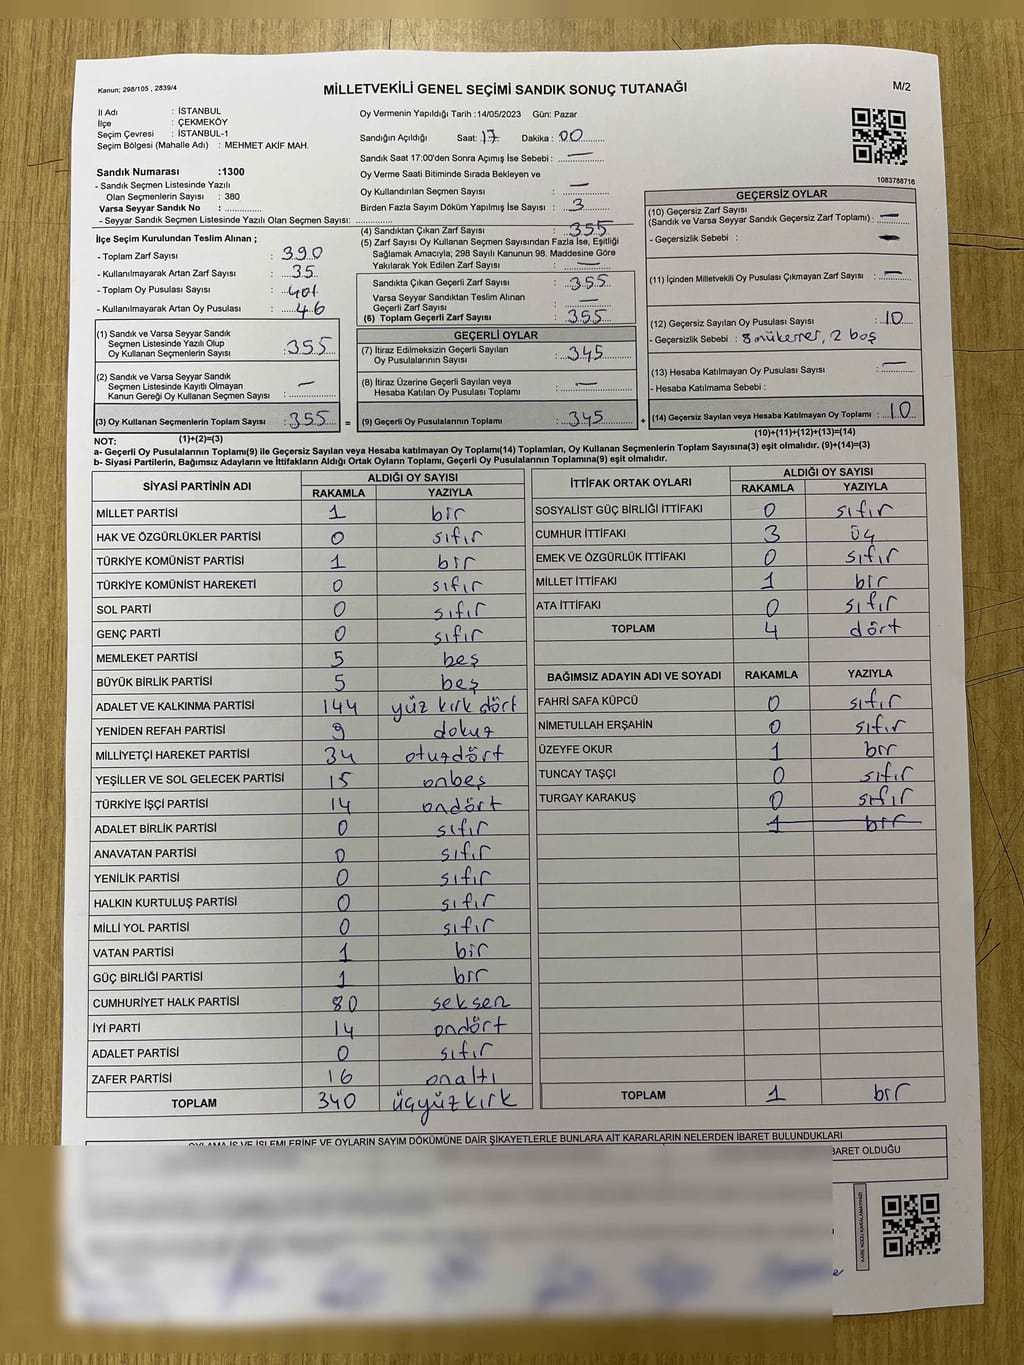 Kanun; 298/105 , 2839/4
MİLLETVEKİLİ GENEL SEÇİMİ SANDIK SONUÇ TUTANAĞI
M/2
İl Adı : İSTANBUL
İlçe : ÇEKMEKÖY
Seçim Çevresi : İSTANBUL-1
Seçim Bölgesi (Mahalle Adı) : MEHMET AKİF MAH.
Sandık Numarası :1300
- Sandık Seçmen Listesinde Yazılı
Olan Seçmenlerin Sayısı : 380
Varsa Seyyar Sandık No :
- Seyyar Sandık Seçmen Listesinde Yazılı Olan Seçmen Sayısı:
Oy Vermenin Yapıldığı Tarih :14/05/2023 Gün: Pazar
Sandığın Açıldığı Saat: 17 Dakika : 00
Sandık Saat 17:00'den Sonra Açımış İse Sebebi : —
Oy Verme Saati Bitiminde Sırada Bekleyen ve
Oy Kullandırılan Seçmen Sayısı : —
Birden Fazla Sayım Döküm Yapılmış İse Sayısı : 3
1083788716
İlçe Seçim Kurulundan Teslim Alınan ;
- Toplam Zarf Sayısı : 390
- Kullanılmayarak Artan Zarf Sayısı : 35
- Toplam Oy Pusulası Sayısı : 401
- Kullanılmayarak Artan Oy Pusulası : 46
(1) Sandık ve Varsa Seyyar Sandık
Seçmen Listesinde Yazılı Olup
Oy Kullanan Seçmenlerin Sayısı : 355
(2) Sandık ve Varsa Seyyar Sandık
Seçmen Listesinde Kayıtlı Olmayan
Kanun Gereği Oy Kullanan Seçmen Sayısı : —
(3) Oy Kullanan Seçmenlerin Toplam Sayısı : 355 =
(4) Sandıktan Çıkan Zarf Sayısı : 355
(5) Zarf Sayısı Oy Kullanan Seçmen Sayısından Fazla İse, Eşitliği
Sağlamak Amacıyla; 298 Sayılı Kanunun 98. Maddesine Göre
Yakılarak Yok Edilen Zarf Sayısı : —
Sandıkta Çıkan Geçerli Zarf Sayısı : 355
Varsa Seyyar Sandıktan Teslim Alınan
Geçerli Zarf Sayısı : —
(6) Toplam Geçerli Zarf Sayısı : 355
GEÇERLİ OYLAR
(7) İtiraz Edilmeksizin Geçerli Sayılan
Oy Pusulalarının Sayısı : 345
(8) İtiraz Üzerine Geçerli Sayılan veya
Hesaba Katılan Oy Pusulası Toplamı : —
(9) Geçerli Oy Pusulalarının Toplamı : 345 +
GEÇERSİZ OYLAR
(10) Geçersiz Zarf Sayısı
(Sandık ve Varsa Seyyar Sandık Geçersiz Zarf Toplamı) : —
- Geçersizlik Sebebi : —
(11) İçinden Milletvekili Oy Pusulası Çıkmayan Zarf Sayısı : —
(12) Geçersiz Sayılan Oy Pusulası Sayısı : 10
- Geçersizlik Sebebi : 8 mükerrer, 2 boş
(13) Hesaba Katılmayan Oy Pusulası Sayısı : —
- Hesaba Katılmama Sebebi :
(14) Geçersiz Sayılan veya Hesaba Katılmayan Oy Toplamı : 10
NOT: (1)+(2)=(3) (10)+(11)+(12)+(13)=(14)
a- Geçerli Oy Pusulalarının Toplamı(9) ile Geçersiz Sayılan veya Hesaba katılmayan Oy Toplamı(14) Toplamları, Oy Kullanan Seçmenlerin Toplam Sayısına(3) eşit olmalıdır. (9)+(14)=(3)
b- Siyasi Partilerin, Bağımsız Adayların ve İttifakların Aldığı Ortak Oyların Toplamı, Geçerli Oy Pusulalarının Toplamına(9) eşit olmalıdır.
SİYASİ PARTİNİN ADI ALDIĞI OY SAYISI
RAKAMLA YAZIYLA
MİLLET PARTİSİ 1 bir
HAK VE ÖZGÜRLÜKLER PARTİSİ 0 sıfır
TÜRKİYE KOMÜNİST PARTİSİ 1 bir
TÜRKİYE KOMÜNİST HAREKETİ 0 sıfır
SOL PARTİ 0 sıfır
GENÇ PARTİ 0 sıfır
MEMLEKET PARTİSİ 5 beş
BÜYÜK BİRLİK PARTİSİ 5 beş
ADALET VE KALKINMA PARTİSİ 144 yüz kırk dört
YENİDEN REFAH PARTİSİ 9 dokuz
MİLLİYETÇİ HAREKET PARTİSİ 34 otuzdört
YEŞİLLER VE SOL GELECEK PARTİSİ 15 onbeş
TÜRKİYE İŞÇİ PARTİSİ 14 ondört
ADALET BİRLİK PARTİSİ 0 sıfır
ANAVATAN PARTİSİ 0 sıfır
YENİLİK PARTİSİ 0 sıfır
HALKIN KURTULUŞ PARTİSİ 0 sıfır
MİLLİ YOL PARTİSİ 0 sıfır
VATAN PARTİSİ 1 bir
GÜÇ BİRLİĞİ PARTİSİ 1 bir
CUMHURİYET HALK PARTİSİ 80 seksen
İYİ PARTİ 14 ondört
ADALET PARTİSİ 0 sıfır
ZAFER PARTİSİ 16 onaltı
TOPLAM 340 üçyüzkırk
İTTİFAK ORTAK OYLARI ALDIĞI OY SAYISI
RAKAMLA YAZIYLA
SOSYALİST GÜÇ BİRLİĞİ İTTİFAKI 0 sıfır
CUMHUR İTTİFAKI 3 üç
EMEK VE ÖZGÜRLÜK İTTİFAKI 0 sıfır
MİLLET İTTİFAKI 1 bir
ATA İTTİFAKI 0 sıfır
TOPLAM 4 dört
BAĞIMSIZ ADAYIN ADI VE SOYADI RAKAMLA YAZIYLA
FAHRİ SAFA KÜPCÜ 0 sıfır
NİMETULLAH ERŞAHİN 0 sıfır
ÜZEYFE OKUR 1 bir
TUNCAY TAŞÇI 0 sıfır
TURGAY KARAKUŞ 0 sıfır
1 bir
TOPLAM 1 bir
OYLAMA İŞ VE İŞLEMLERİNE VE OYLARIN SAYIM DÖKÜMÜNE DAİR ŞİKAYETLERLE BUNLARA AİT KARARLARIN NELERDEN İBARET BULUNDUKLARI
BARET OLDUĞU
KARE KODU KARALAMAYINIZ!